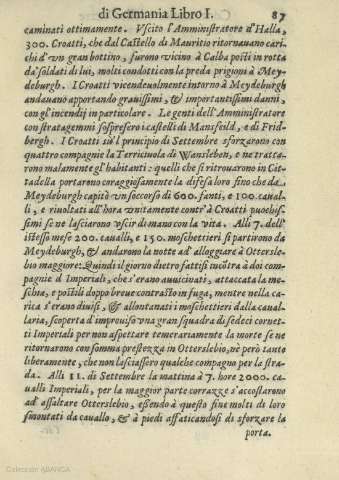 di Germania Libro I. 87
caminati ottimamente. Vscito l'Amministratore d'Halla,
300. Croatti, che dal Castello di Mauritio ritornauano cari-
chi d'vn gran bottino, furono vicino à Calba posti in rotta
da'soldati di lui, molti condotti con la preda prigioni à Mey-
deburgh. I Croatti vicendeuolmente intorno à Meydeburgh
andauano apportando grauissimi, & importantissimi danni,
con gl'incendij in particolare. Le genti dell'Amministratore
con stratagemmi sospresero i castelli di Mansfeild, e di Frid-
bergh. I Croatti su'l principio di Settembre sforzarono con
quattro compagnie la Terriciuola di Wansleben, e ne tratta-
rono malamente gl'habitanti: quelli che si ritrouarono in Cit-
tadella portarono coraggiosamente la difesa loro fino che da
Meydeburgh capitò vn soccorso di 600. fanti, e 100. caual-
li, e riuoltati all'hora vnitamente contr'à Croatti puochis-
simi se ne lasciarono vscir di mano con la vita. Alli 7. dell'
istesso mese 200. caualli, e 150. moschettieri si partirono da
Meydeburgh, & andarono la notte ad'alloggiare à Otterslе-
bio maggiore: Quindi il giorno dietro fattisi incōtra à doi com-
pagnie d'Imperiali, che s'erano auuicinati, attaccata la me-
schia, e postili doppo breue contrasto in fuga, mentre nella ca-
rica s'erano diuisi, & allontanati i moschettieri dalla caual-
laria, scoperta d'improuiso vna gran squadra di sedeci cornet-
ti Imperiali per non aspettare temerariamente la morte se ne
ritornarono con somma prestezza in Otterslebio, nè però tanto
liberamente, che non lasciassero qualche compagno per la stra-
da. Alli 11. di Settembre la mattina à 7. hore 2000. ca-
ualli Imperiali, per la maggior parte corrazze s'accostarono
ad'assaltare Otterslebio, essendo à questo fine molti di loro
smontati da cauallo, & à piedi affaticandosi di sforzare la
porta.
Colección ABANCA